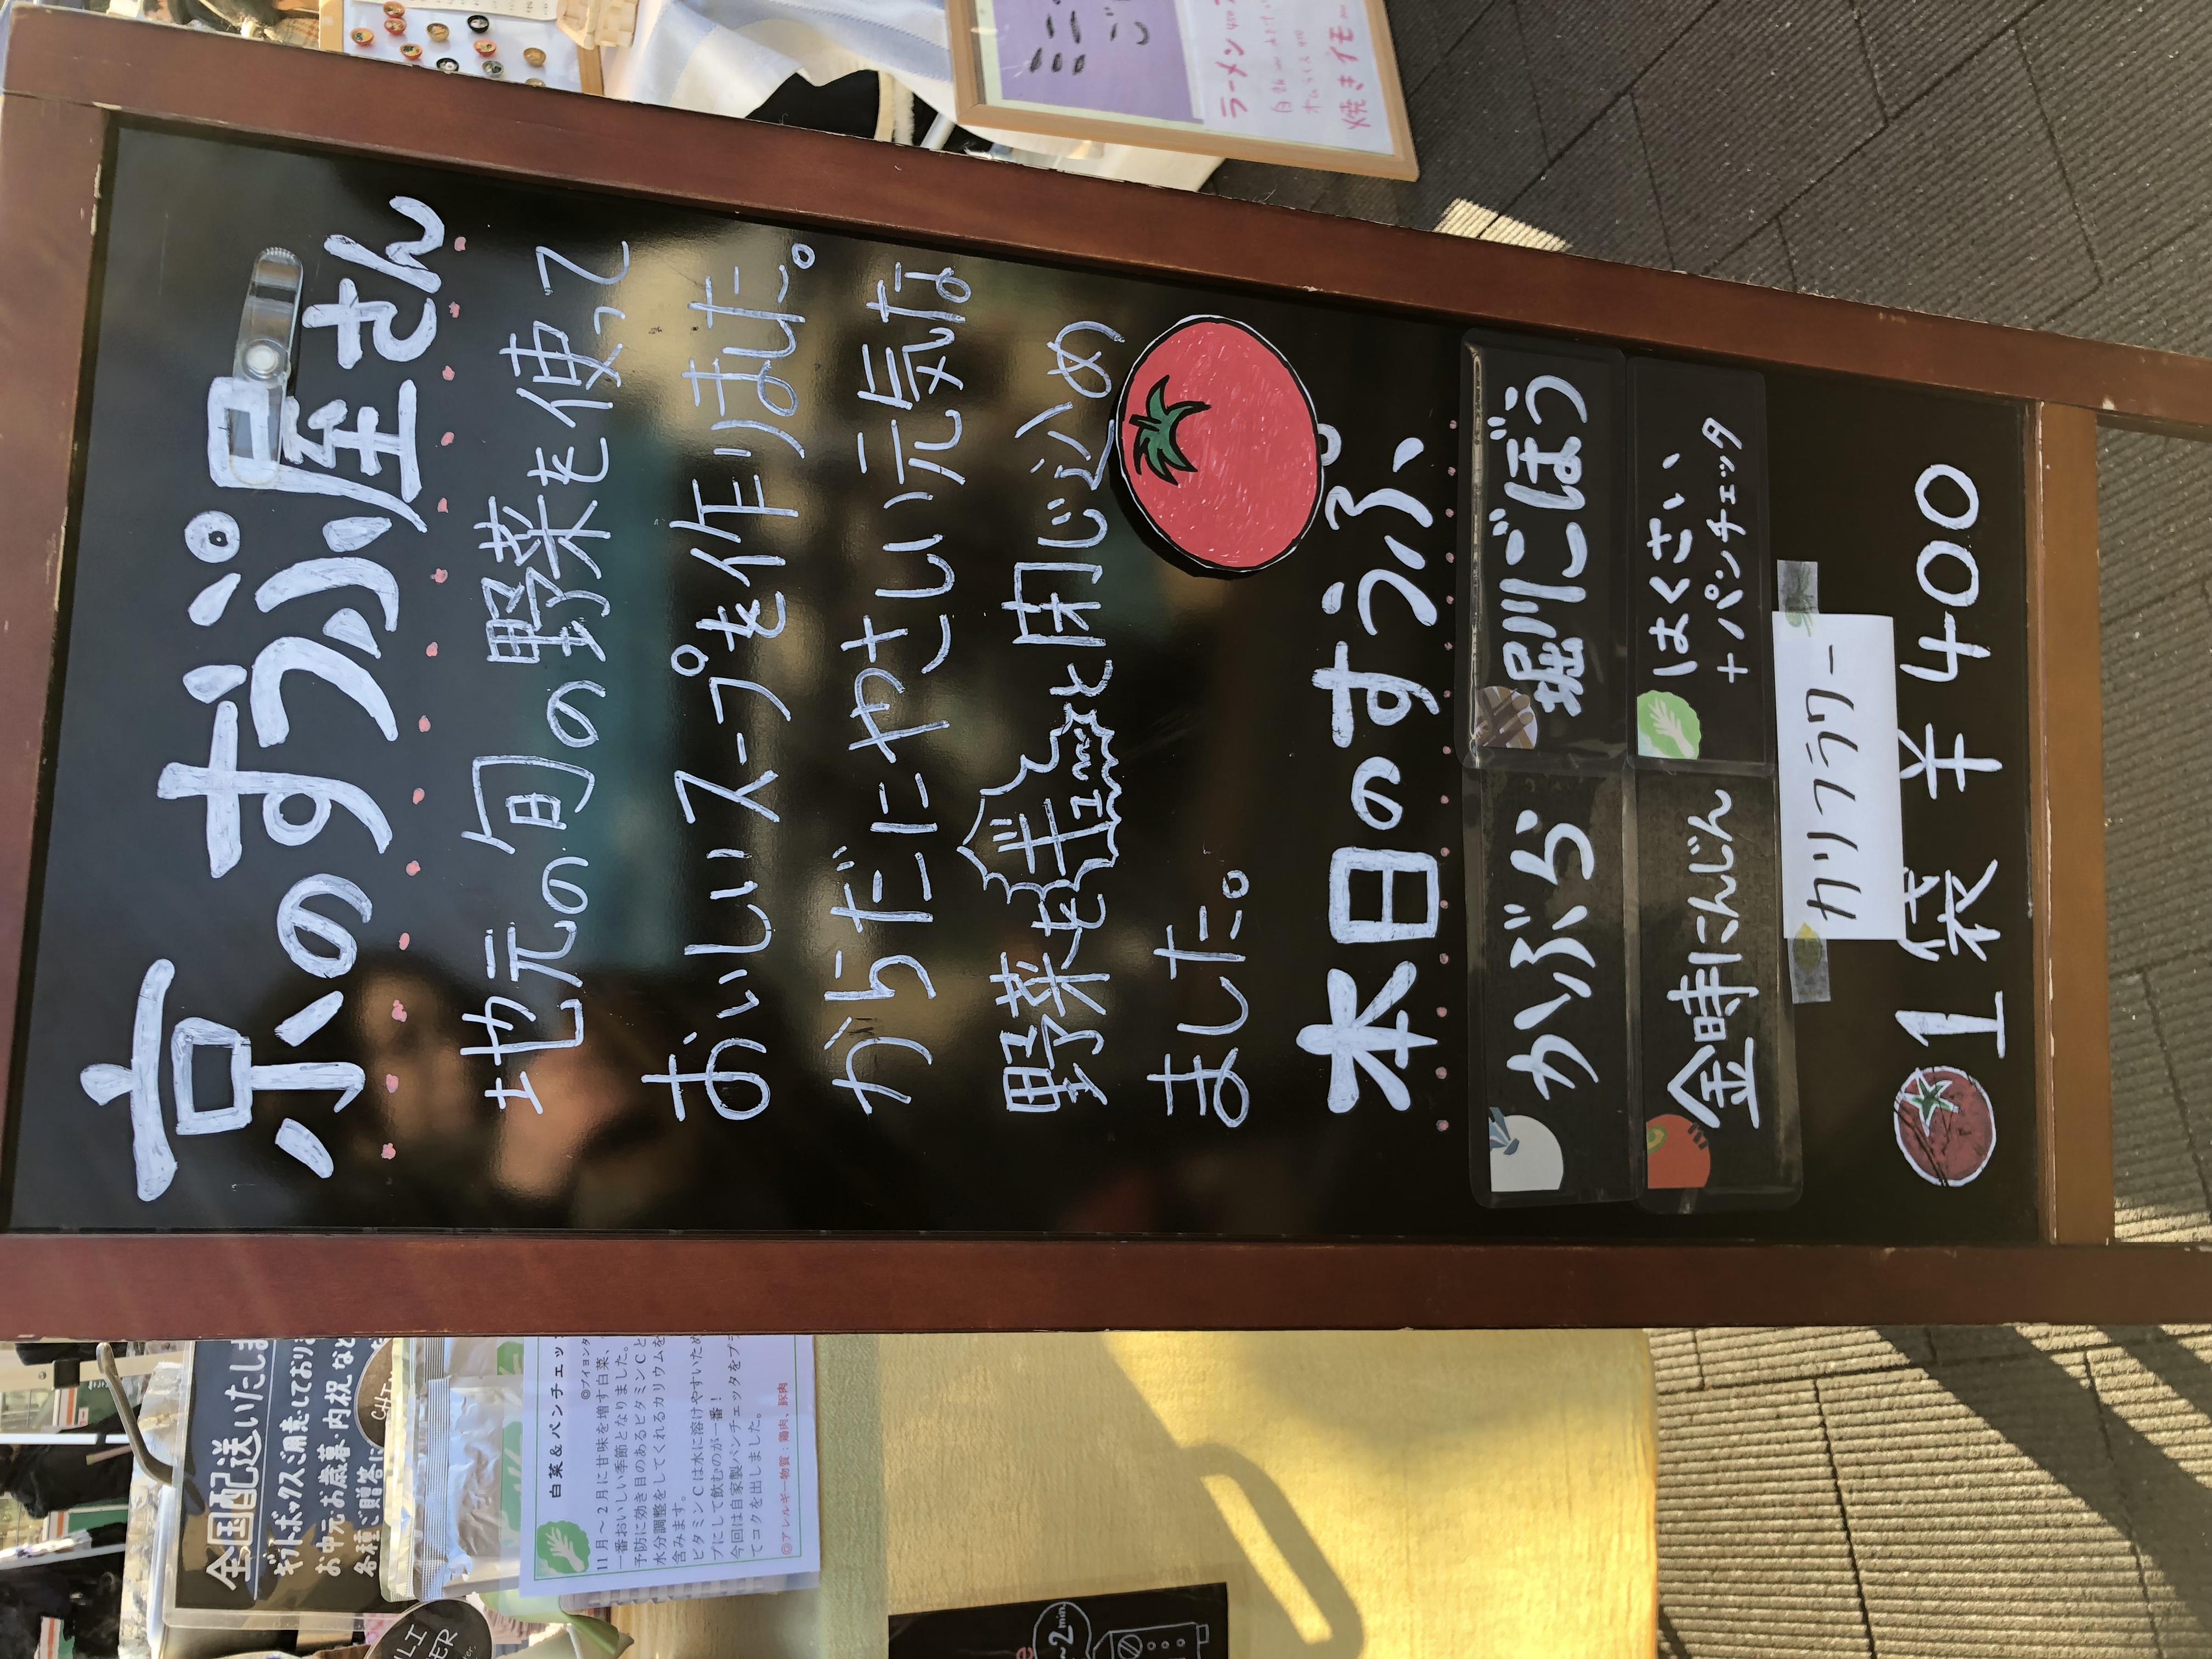 京のすうぷ屋さん
地元の旬の野菜を使って
おいしいスープを作りました。
からだにやさしい元気な
野菜をギューッと閉じ込め
ました。
本日のすうぷ
かぶら
堀川ごぼう
金時にんじん
はくさい
+パンチェッタ
カリフラワー
1袋 ¥400
ラーメン
焼きイモ
全国配送いたしま
ギフトボックスご用意しており
お中元・お歳暮・内祝など
各種ご贈答に
白菜&パンチェッ
◎ブイヨンタ
11月~2月に甘味を増す白菜、
一番おいしい季節となりました。
予防に効き目のあるビタミンCと
水分調整をしてくれるカリウムを
含みます。
ビタミンCは水に溶けやすいため
プにして飲むのが一番!
今回は自家製パンチェッタをプラ
てコクを出しました。
◎アレルギー物質:鶏肉、豚肉
2min.